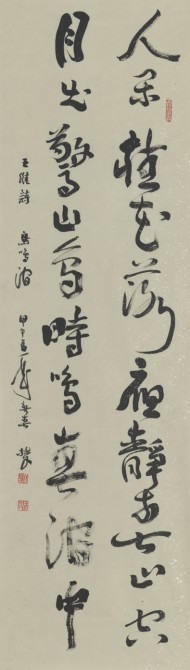 人閒桂花落夜靜春山空
月出驚山鳥時鳴春澗中
王維詩 鳥鳴澗 甲午